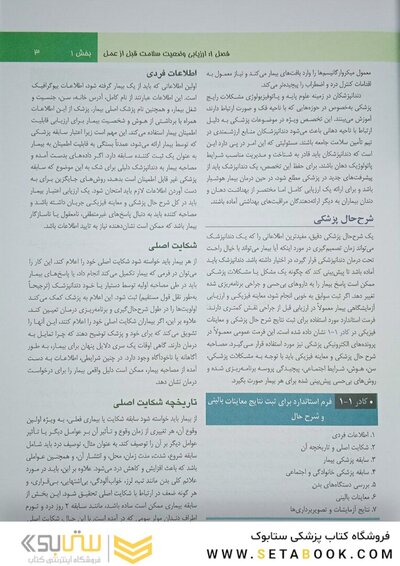 فصل ۱: ارزیابی وضعیت سلامت قبل از عمل
بخش ۱
۳
معمول میکروارگانیسم‌ها را وارد بافت‌های بیمار می‌کند و نیاز معمول به
اقدامات کنترل درد و اضطراب را پیچیده‌تر می‌کند.
دندانپزشکان در زمینه علوم پایه و پاتوفیزیولوژی مشکلات رایج
پزشکی به‌خصوص در حوزه‌هایی که با ناحیه فک و صورت ارتباط دارند،
آموزش می‌بینند. این تخصص ویژه در موضوعات پزشکی به دلیل
ارتباط با ناحیه دهانی باعث می‌شود دندانپزشکان منابع ارزشمندی در
تیم تأمین سلامت جامعه باشند. مسئولیتی که این امر در پی دارد این
است که دندانپزشکان باید قادر به شناخت و مدیریت مناسب شرایط
پاتولوژیک دهان باشند. برای حفظ این تخصص، یک دندانپزشک باید از
پیشرفت‌های جدید در پزشکی مطلع شود، در حین درمان بیمار هوشیار
باشد و برای ارائه یک ارزیابی کامل اما مختصر از بهداشت دهان و
دندان بیماران به دیگر ارائه‌دهندگان مراقبت‌های بهداشتی آماده باشند.
شرح‌حال پزشکی
یک شرح‌حال پزشکی دقیق، مفیدترین اطلاعاتی را که یک دندانپزشک
می‌تواند زمان تصمیم‌گیری در مورد اینکه آیا بیمار می‌تواند با خیال راحت
تحت درمان دندانپزشکی قرار گیرد، در اختیار داشته باشد. دندانپزشک باید
آماده باشد تا پیش‌بینی کند که چگونه یک مشکل یا مشکلات پزشکی
ممکن است پاسخ بیمار را به داروهای بی‌حسی و جراحی برنامه‌ریزی شده
تغییر دهد. اگر ثبت سوابق به خوبی انجام شود، معاینه فیزیکی و ارزیابی
آزمایشگاهی بیمار معمولاً در ارزیابی قبل از جراحی نقش کمتری دارند.
فرمت استاندارد مورد استفاده برای ثبت نتایج شرح حال پزشکی و معاینات
فیزیکی در کادر ۱-۱ نشان داده شده است. این فرمت عمومی معمولاً در
پرونده‌های الکترونیکی پزشکی نیز مورد استفاده قرار می‌گیرد. مصاحبه
شرح حال پزشکی و معاینه فیزیکی باید با توجه به مشکلات پزشکی،
سن، هوش، شرایط اجتماعی، پیچیدگی پروسه برنامه‌ریزی شده و
روش‌های بی‌حسی پیش‌بینی شده برای هر بیمار صورت بگیرد.
• کادر ۱-۱ فرم استاندارد برای ثبت نتایج معاینات بالینی
و شرح حال
۱. اطلاعات فردی
۲. شکایت اصلی و تاریخچه آن
۳. سابقه پزشکی بیمار
۴. سابقه پزشکی خانوادگی و اجتماعی
۵. بررسی دستگاه‌های بدن
۶. معاینات بالینی
۷. نتایج آزمایشات و تصویربرداری‌ها
اطلاعات فردی
اولین اطلاعاتی که باید از یک بیمار گرفته شود، اطلاعات بیوگرافیک
است. این اطلاعات عبارتند از نام کامل، آدرس خانه، سن، جنسیت و
شغل بیمار، و همچنین نام پزشک اصلی بیمار. پزشک از این اطلاعات
همراه با برداشتی از هوش و شخصیت بیمار برای ارزیابی قابلیت
اطمینان بیمار استفاده می‌کند. این مهم است زیرا اعتبار سابقه پزشکی
که توسط بیمار ارائه می‌شود، عمدتاً بستگی به قابلیت اطمینان به بیمار
به عنوان یک ثبت کننده سابقه دارد. اگر داده‌های بدست آمده و
مصاحبه بیمار به دندانپزشک دلیلی برای شک به این موضوع که سابقه
پزشکی غیر قابل اطمینان است بدهند، روش‌های جایگزین برای به
دست آوردن اطلاعات لازم باید امتحان شود. یک ارزیابی اعتبار بیمار
باید در کل شرح حال پزشکی و معاینه فیزیکی جریان داشته باشد و
مصاحبه کننده باید به دنبال پاسخ‌های غیرمنطقی، نامعقول یا ناسازگار
بیمار باشد که ممکن است نشان‌دهنده نیاز به تایید اطلاعات باشد.
شکایت اصلی
از هر بیمار باید خواسته شود شکایت اصلی خود را اعلام کند. این کار را
می‌توان در فرمی که بیمار تکمیل می‌کند انجام داد، یا پاسخ‌های بیمار
باید در طی مصاحبه اولیه توسط دستیار یا خود دندانپزشک (ترجیحاً
به‌طور نقل قول مستقیم) ثبت شود. این اعلام به پزشک کمک می‌کند
اولویت‌ها را در طول شرح‌حال‌گیری و برنامه‌ریزی درمان تعیین کنند.
علاوه بر این، اگر بیماران شکایت اصلی خود را اعلام کنند، این آنها را
تشویق می‌کند که برای خود و پزشک توضیح دهند که چرا تمایل به
درمان دارند. گاهی اوقات یک سری دلایل پنهان برای بیمار، به طور
آگاهانه یا ناخودآگاه وجود دارد. در چنین شرایطی، اطلاعات به دست
آمده از مصاحبه بیمار، ممکن است دلیل واقعی بیمار را برای درخواست
درمان نشان دهد.
تاریخچه شکایت اصلی
از بیمار باید خواسته شود سابقه شکایت یا بیماری فعلی، به ویژه اولین
وقوع آن، هر تغییری از زمان وقوع و تأثیر آن بر عوامل دیگر یا تأثیر
عوامل دیگر بر آن را توصیف کند. به عنوان مثال، توصیف درد باید شامل
سابقه شروع، شدت، مدت زمان، محل، و انتشار آن، و همچنین عواملی
باشد که باعث افزایش و کاهش درد می‌شود. علاوه بر این، باید در مورد
علائم کلی بدن مانند تب، لرز، خواب‌آلودگی، بی‌اشتهایی، بی‌قراری و
هر گونه ضعف در ارتباط با شکایت اصلی تحقیق شود. این بخش از
سابقه بیماری ممکن است ساده باشد، مانند سابقه ۲ روز درد و تورم
فروشگاه کتاب پزشکی ستابوک
WWW.SETABOOK.COM
ستابوک
فروشگاه اینترنتی کتاب